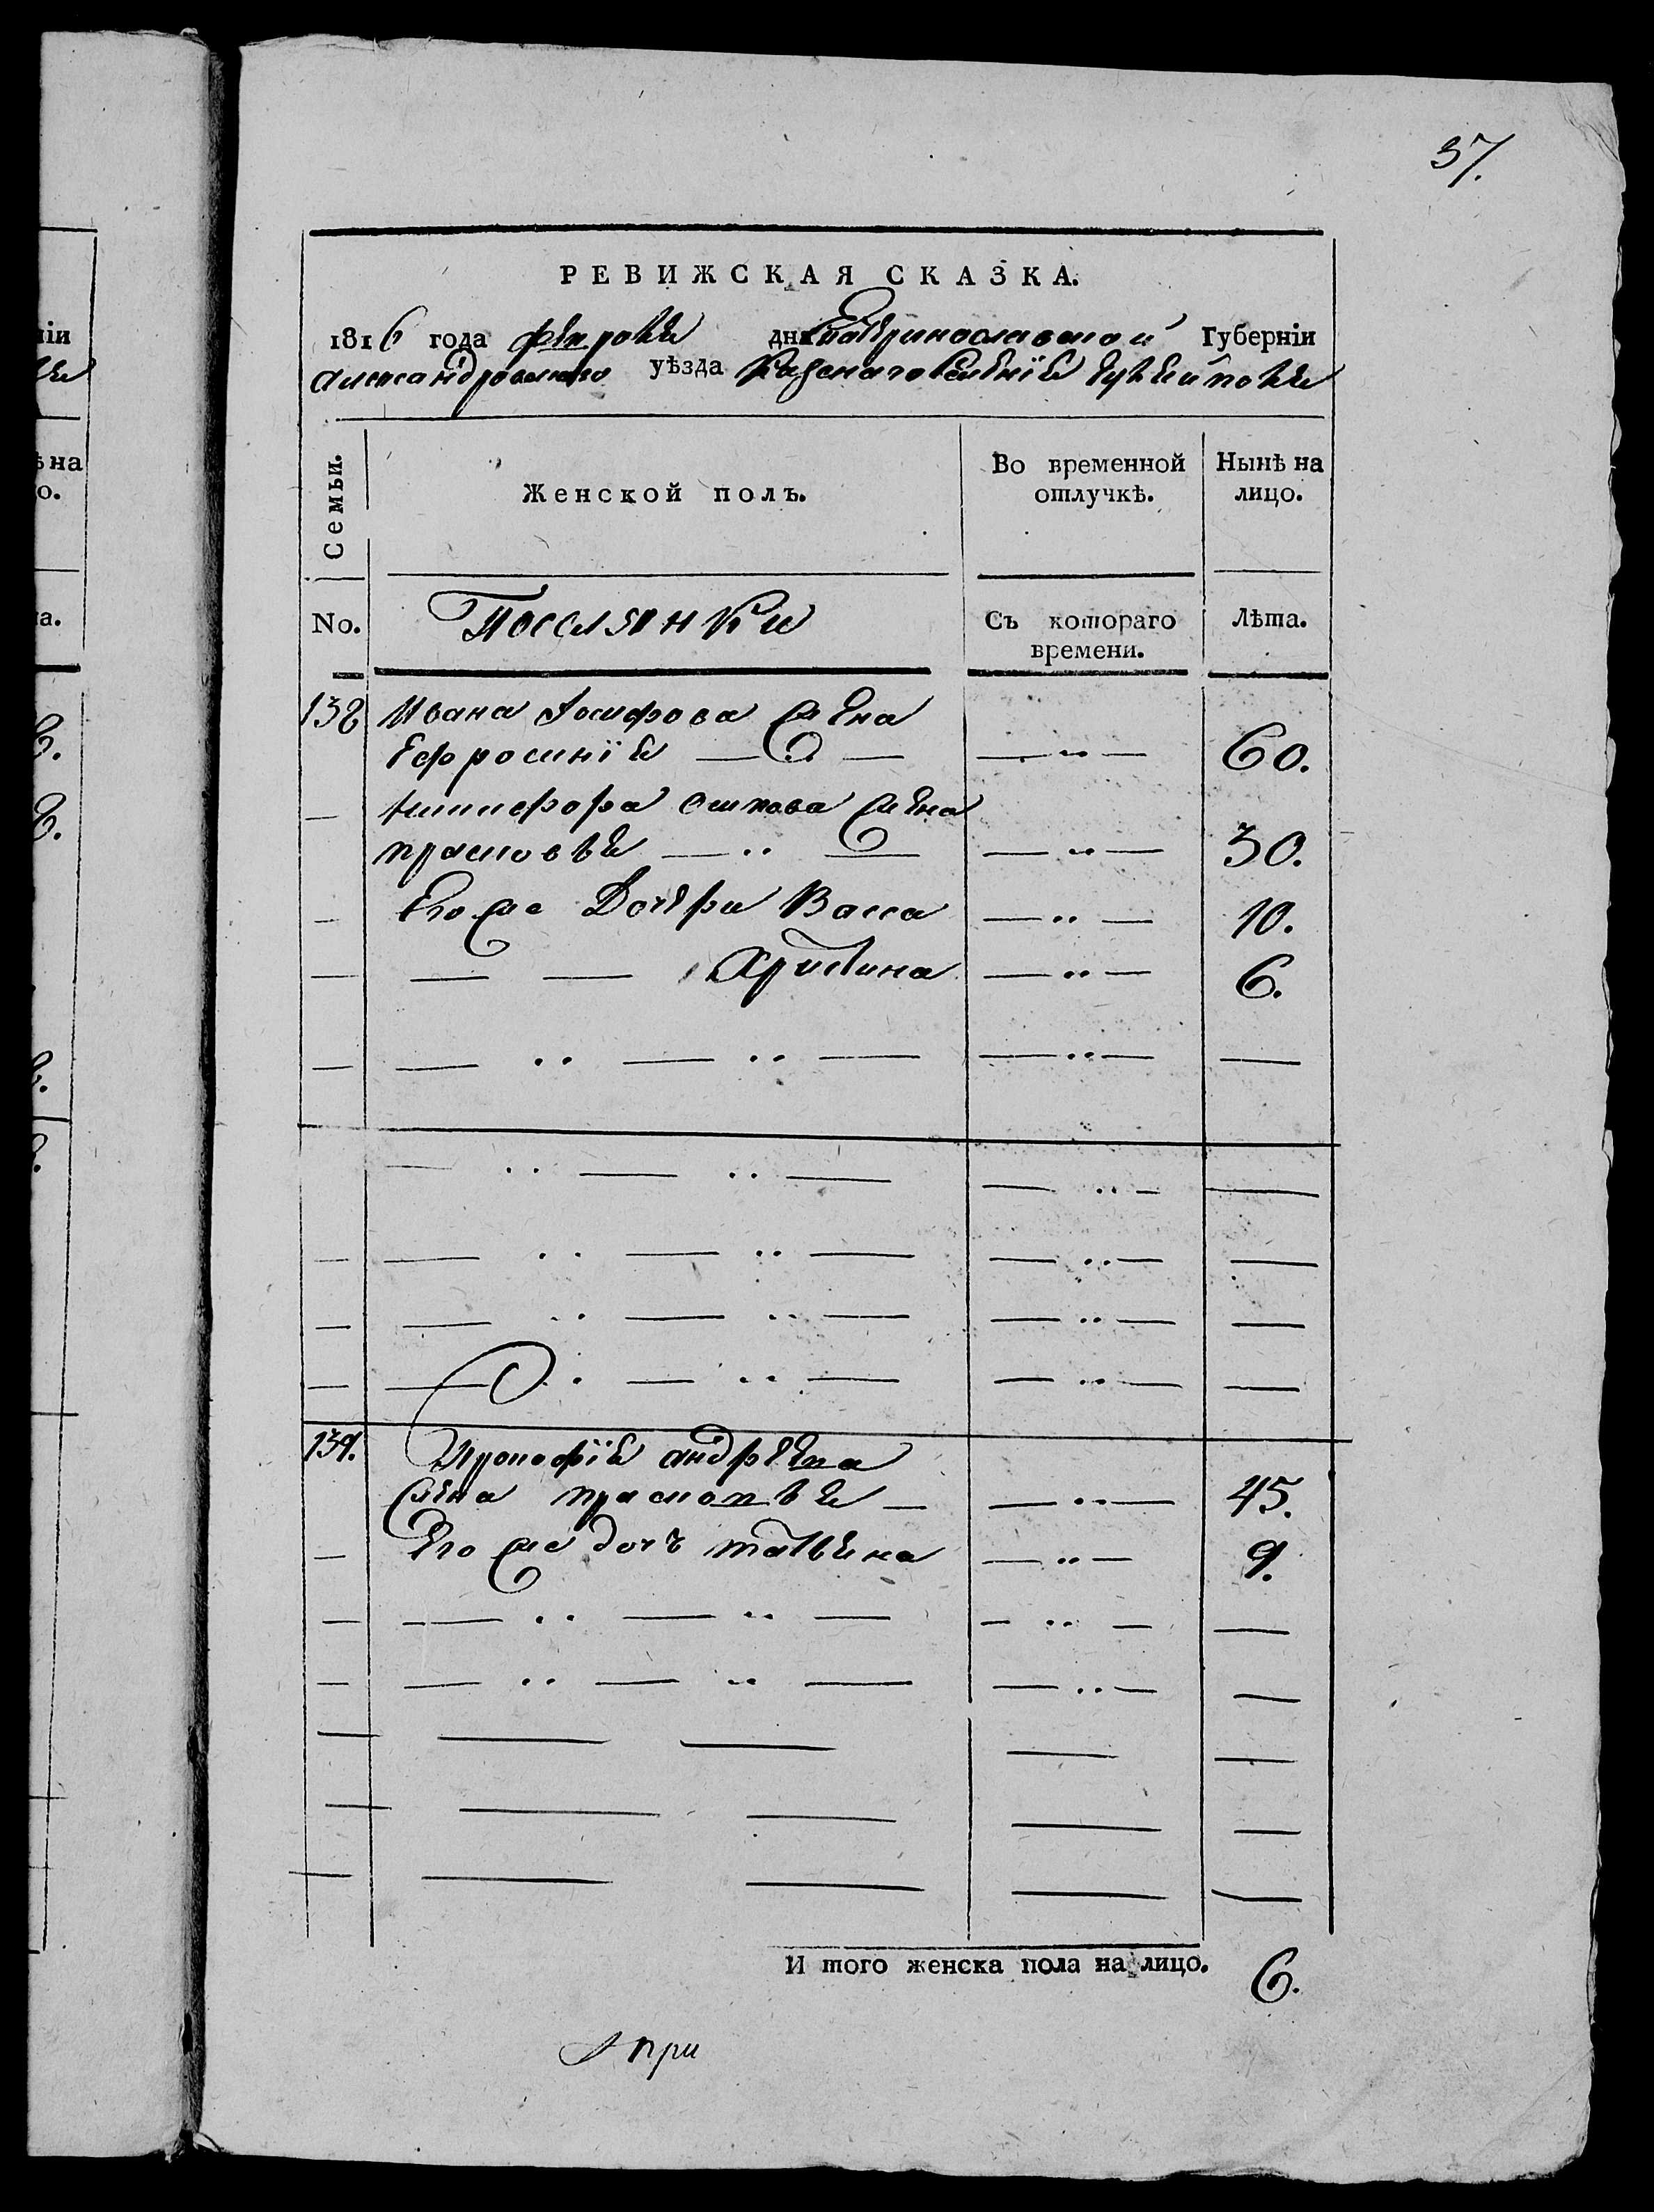 37.
РЕВИЖСКАЯ СКАЗКА.
1816 года февраля дня Екатеринославской Губерніи
александровскаго уѣзда Казеннаго селенія
Семьи.
Женской полъ.
Во временной отлучкѣ.
Нынѣ на лицо.
No.
Поселянки
Съ котораго времени.
Лѣта.
138 Ивана Іосифова жена
Ефросинія — — — „ — 60.
— никифора осипова жена
прасковья — „ — — „ — 30.
— Его же Дочери Васса — „ — 10.
— — — Христина — „ — 6.
139. Прокофія андреева
жена прасковья — — „ — 45.
— Его же дочь татьяна — „ — 9.
И того женска пола на лицо. 6.
при
іи
ѣ на
о.
а.